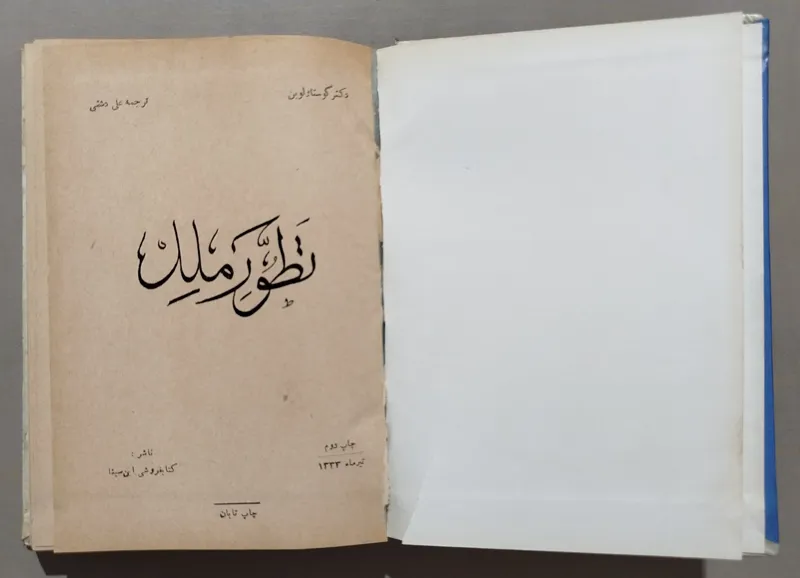 دکتر گوستاولوبن
ترجمه علی دشتی
تَطَوُّرِ مِلَلْ
چاپ دوم
تیرماه ۱۳۳۳
ناشر :
کتابفروشی ابن سینا
چاپ تابان